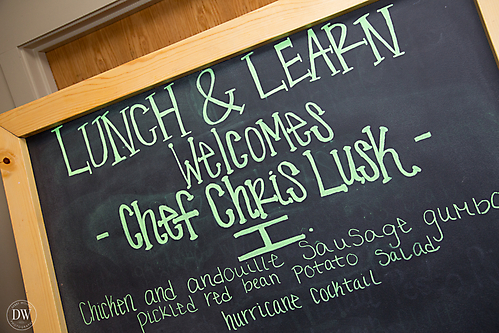 LUNCH & LEARN
WELCOMES
- Chef Chris Lusk -
I.
Chicken and andouille sausage gumbo
pickled red bean potato salad
hurricane cocktail
DW